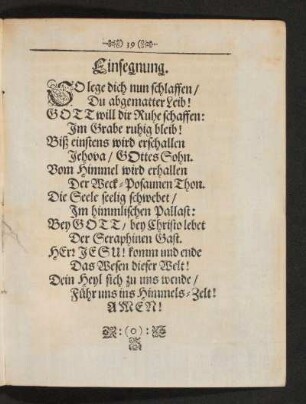 19
Einsegnung.
SO lege dich nun schlaffen /
Du abgematter Leib!
GOTT will dir Ruhe schaffen:
Im Grabe ruhig bleib!
Biß einstens wird erschallen
Jehova / GOttes Sohn.
Vom Himmel wird erhallen
Der Weck-Posaunen Thon.
Die Seele seelig schwebet /
Im himmlischen Pallast:
Bey GOTT / bey Christo lebet
Der Seraphinen Gast.
HErr JESU! komm und ende
Das Wesen dieser Welt!
Dein Heyl sich zu uns wende /
Führ uns ins Himmels-Zelt!
AMEN!
:(o):